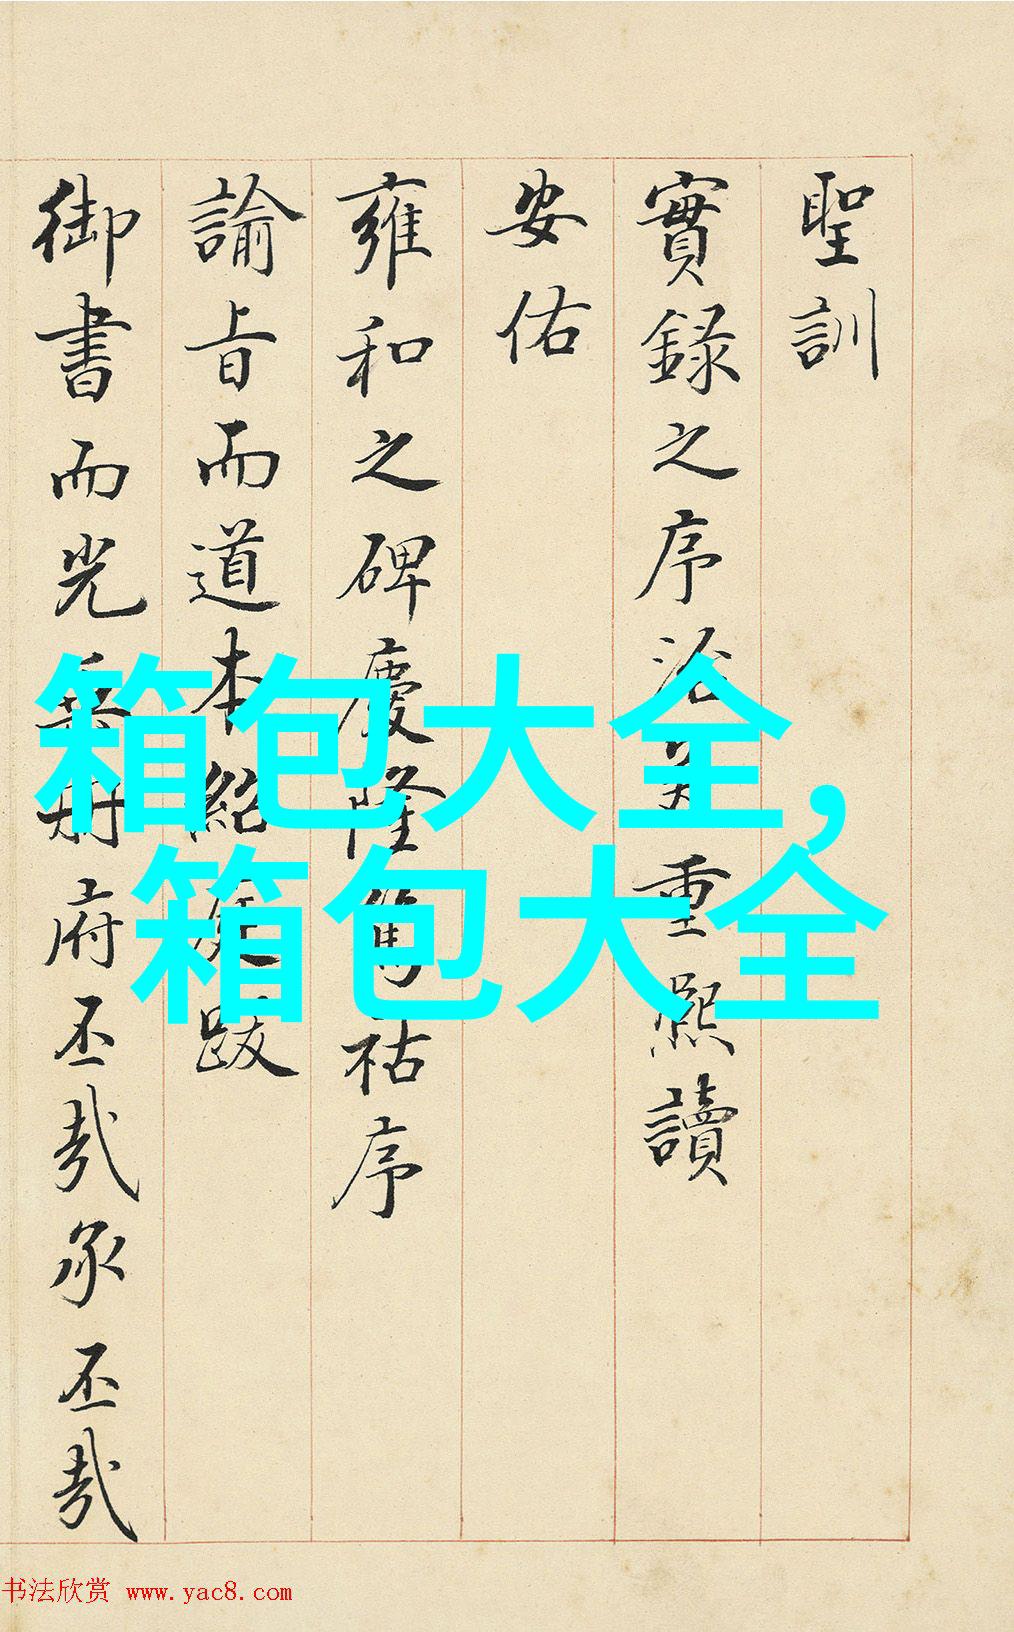 聖訓
實錄之序重熙讀
安佑
雍和之碑慶隆祜序
諭旨而道本紹跋
御書而光册府丕哉承丕哉
箱包大全,
箱包大全
书法欣赏 www.yac8.com